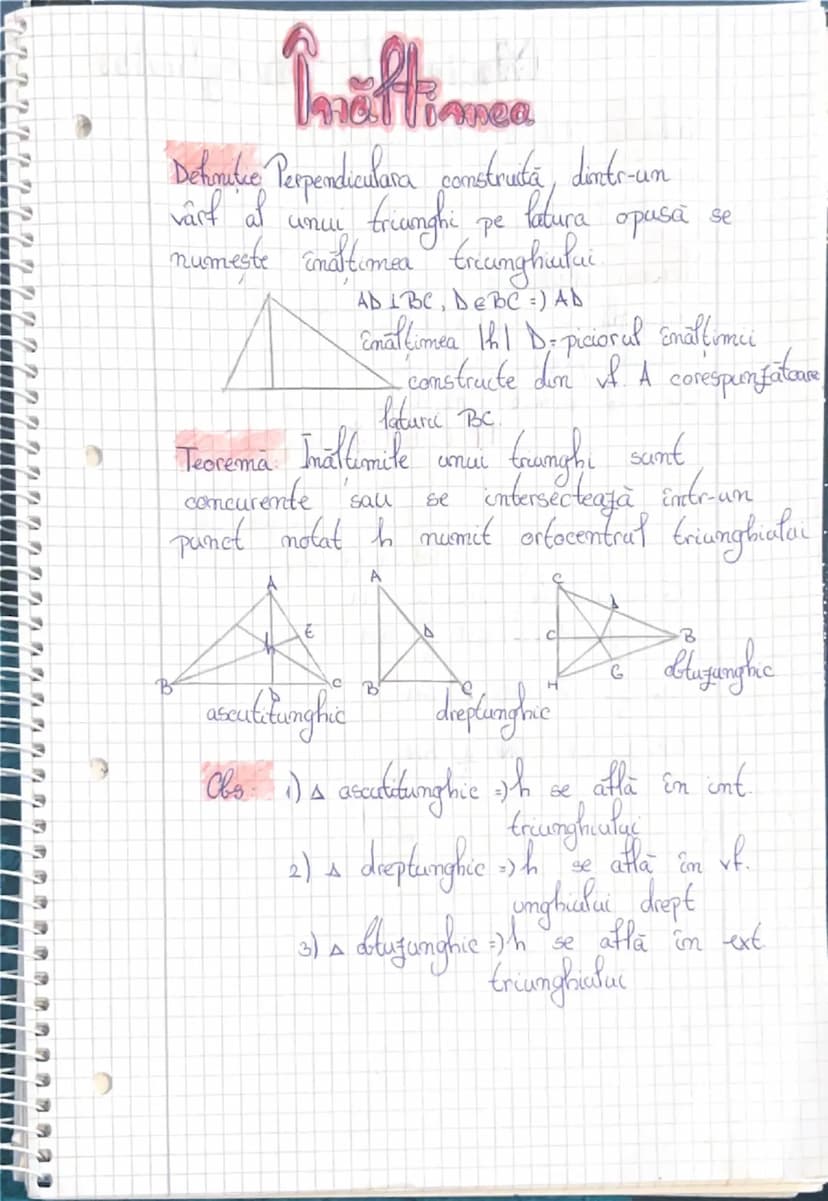 Înălțimea
Definiție: Perpendiculara construită, dintr-un
vârf al unui triunghi pe latura opusă se
numește înălțimea triunghiului.
AD⊥BC, D∈BC =) AD
înălțimea |h| D= piciorul înălțimii
constructe din vf. A corespunzătoare
laturii BC.
Teoremă: Înălțimile unui triunghi sunt
concurente sau se intersectează într-un
punct notat h numit ortocentrul triunghiului
A
E
h
B
D
C
ascutitunghic
A
D
B
C
dreptunghic
C
A
C
B
H
G
obtuzunghic
Obs. 1) Δ ascutitunghic =) h se află în int.
triunghiului
2) Δ dreptunghic =) h se află în vf.
unghiului drept
3) Δ obtuzunghic =) h se află în ext.
triunghiului